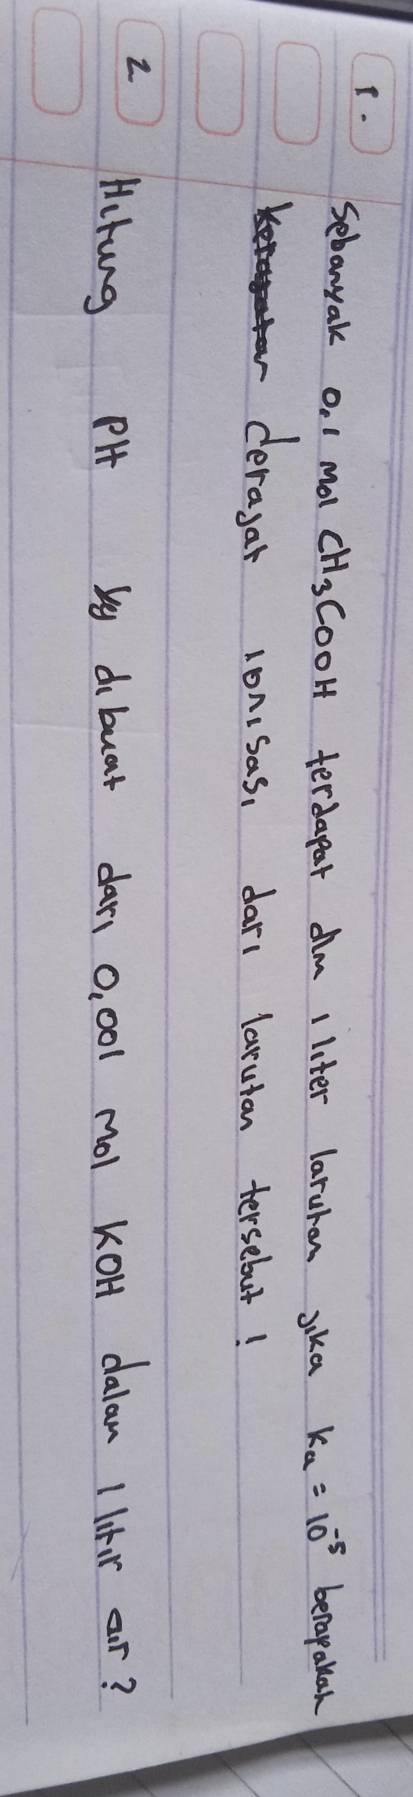 1. Sebanyak 0,1 Mol CH₃COOH terdapat dlm 1 liter larutan jika Ka = 10⁻⁵ berapakah
derajat ionisasi dari larutan tersebut!
2 Hitung PH yg dibuat dari 0,001 Mol KOH dalam 1 litir air?